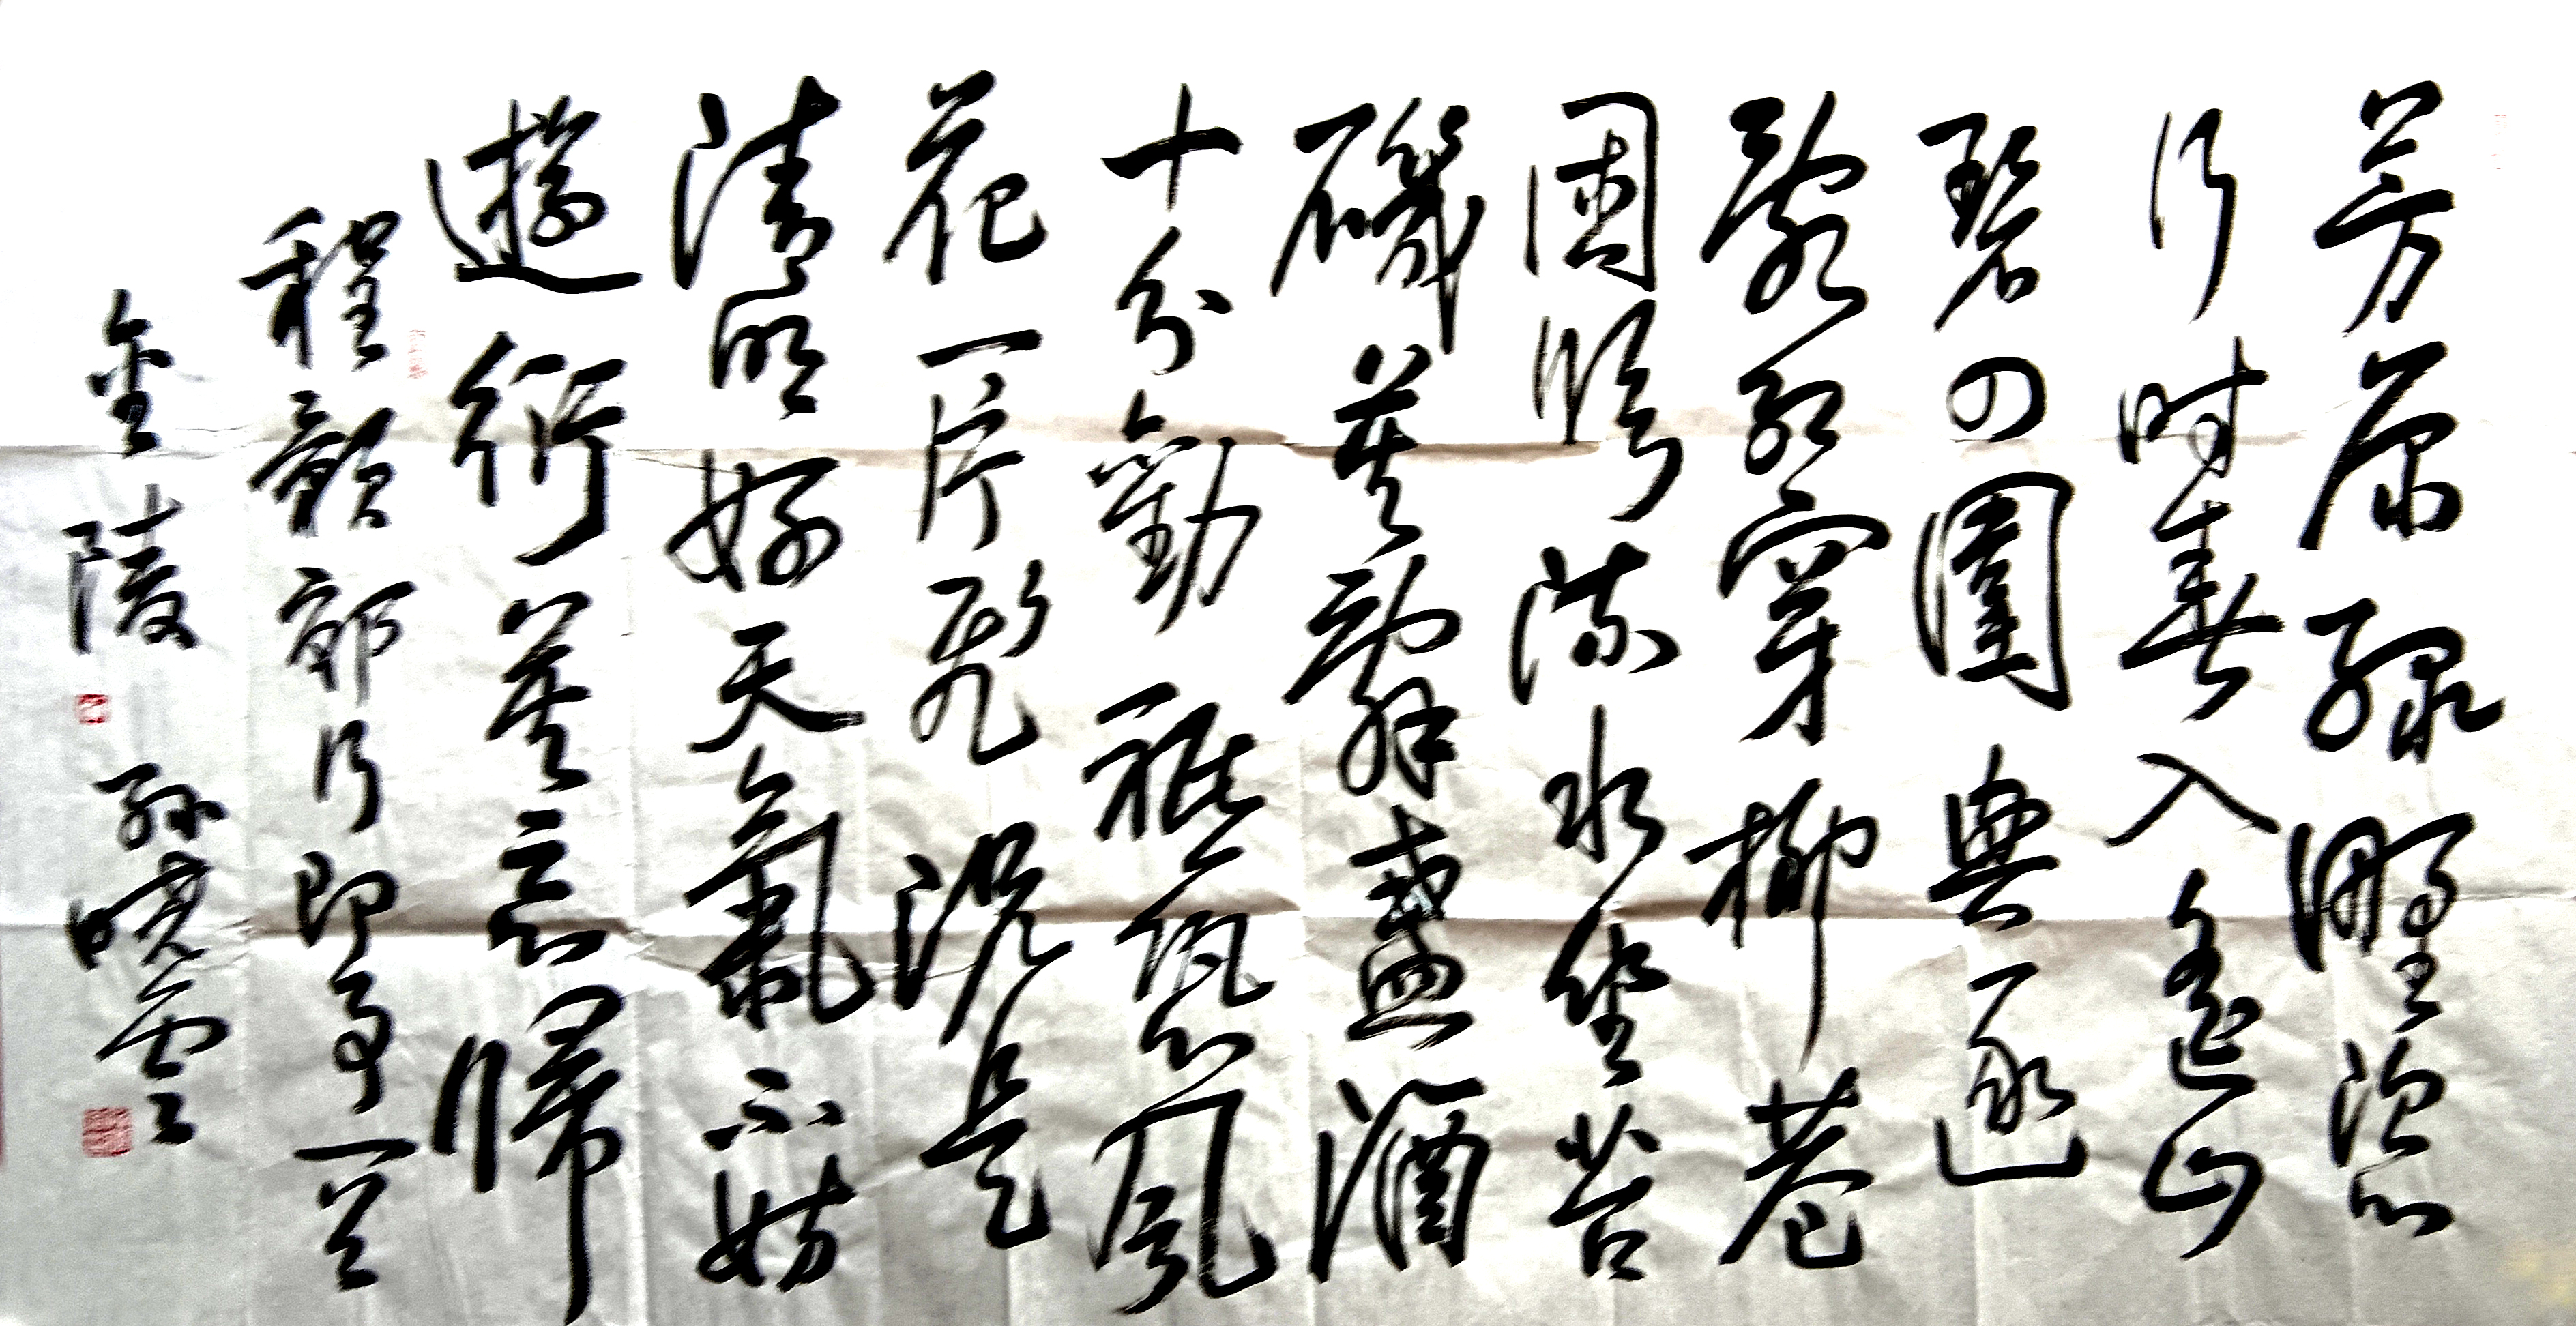 芳原綠野恣
行时春入遙山
碧四圍興逐
亂紅穿柳巷
困臨流水坐苔
磯莫辭盞酒
十分勸祗恐風
花一片飛況是
清明好天氣不妨
遊衍莫忘歸
程顥郊行即事一首
金陵 孫曉雲